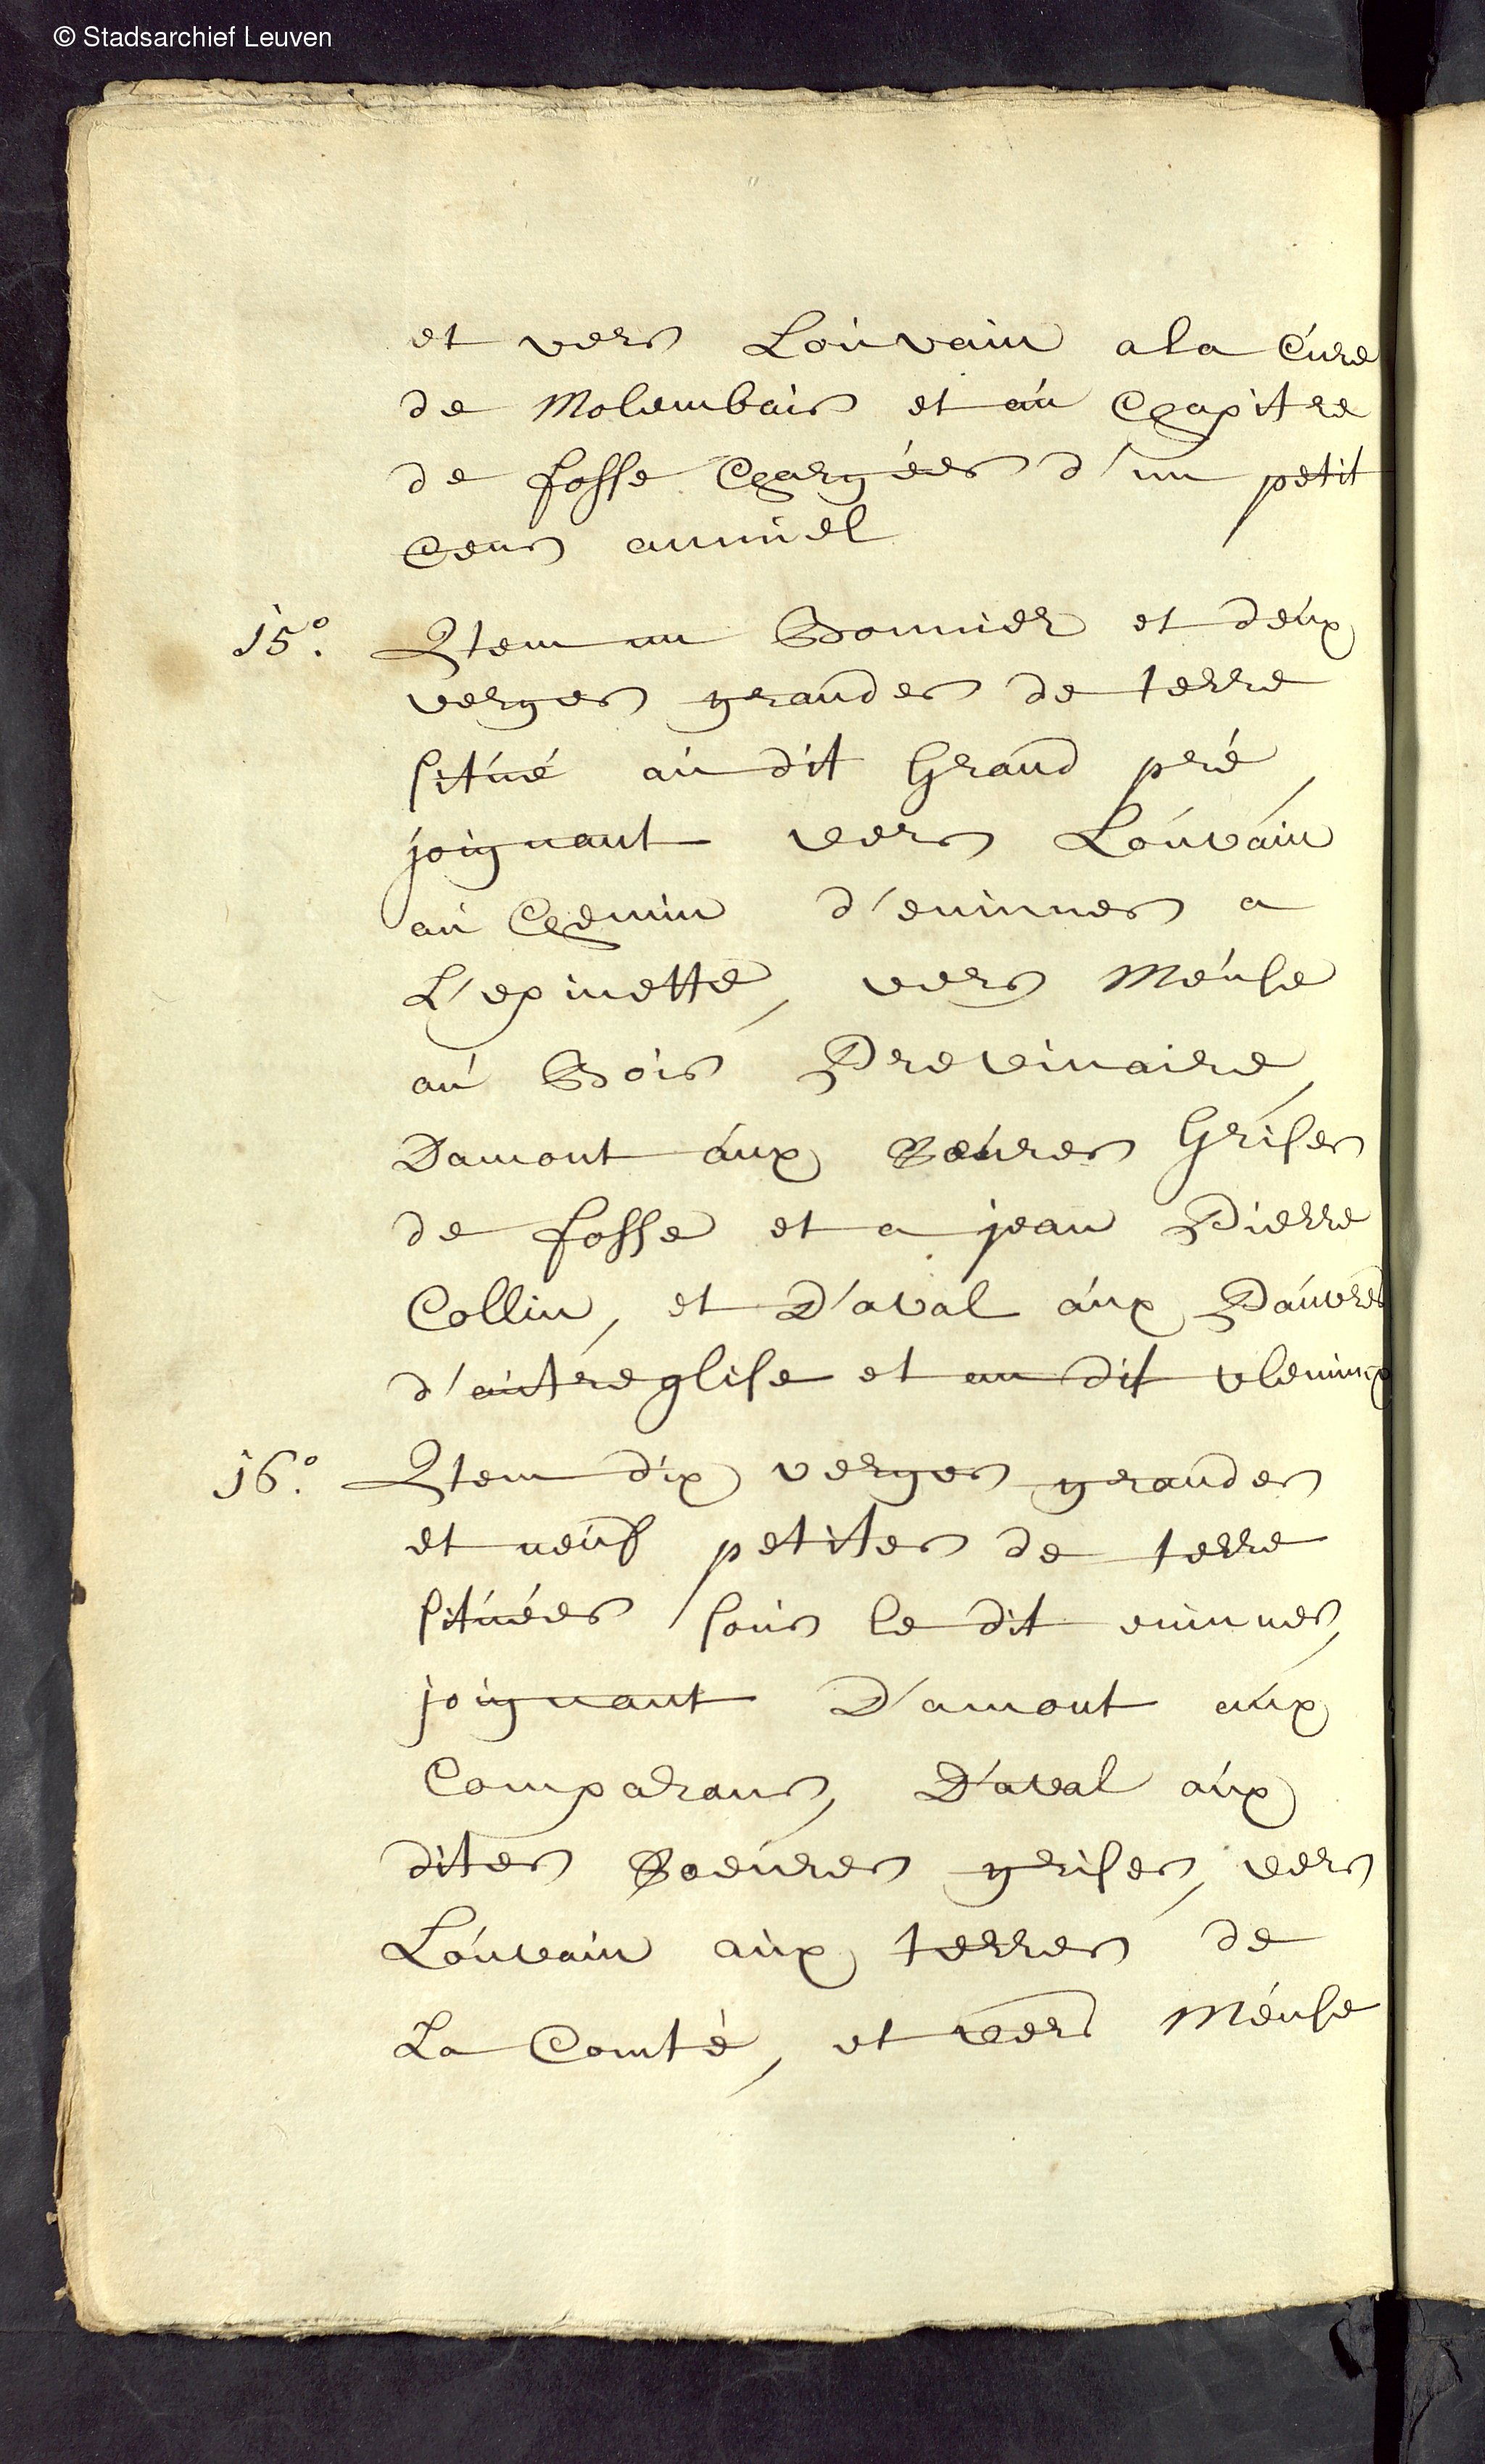 © Stadsarchief Leuven
et vers Louvain a la Cure
de Molembais et au Chapitre
de fosse Chargées d'un petit
Cens annuel
15.° Item un Bonnier et deux
verges grandes de terre
situé au dit Grand pré,
joignant vers Louvain
au Chemin d'eninnes a
L'epinette, vers Meuse
au Bois Previnaire,
Damont aux Soeures Grises
de fosse et a jean Pierre
Collin, et D'aval aux Pauvres
d'autreglise et au dit vleminx
16.° Item dix verges grandes
et neuf petites de terre
situées sous le dit eninnes,
joignant D'amont aux
Comparans, D'aval aux
dites Soeures grises, vers
Louvain aux terres de
La Comté, et vers Meuse